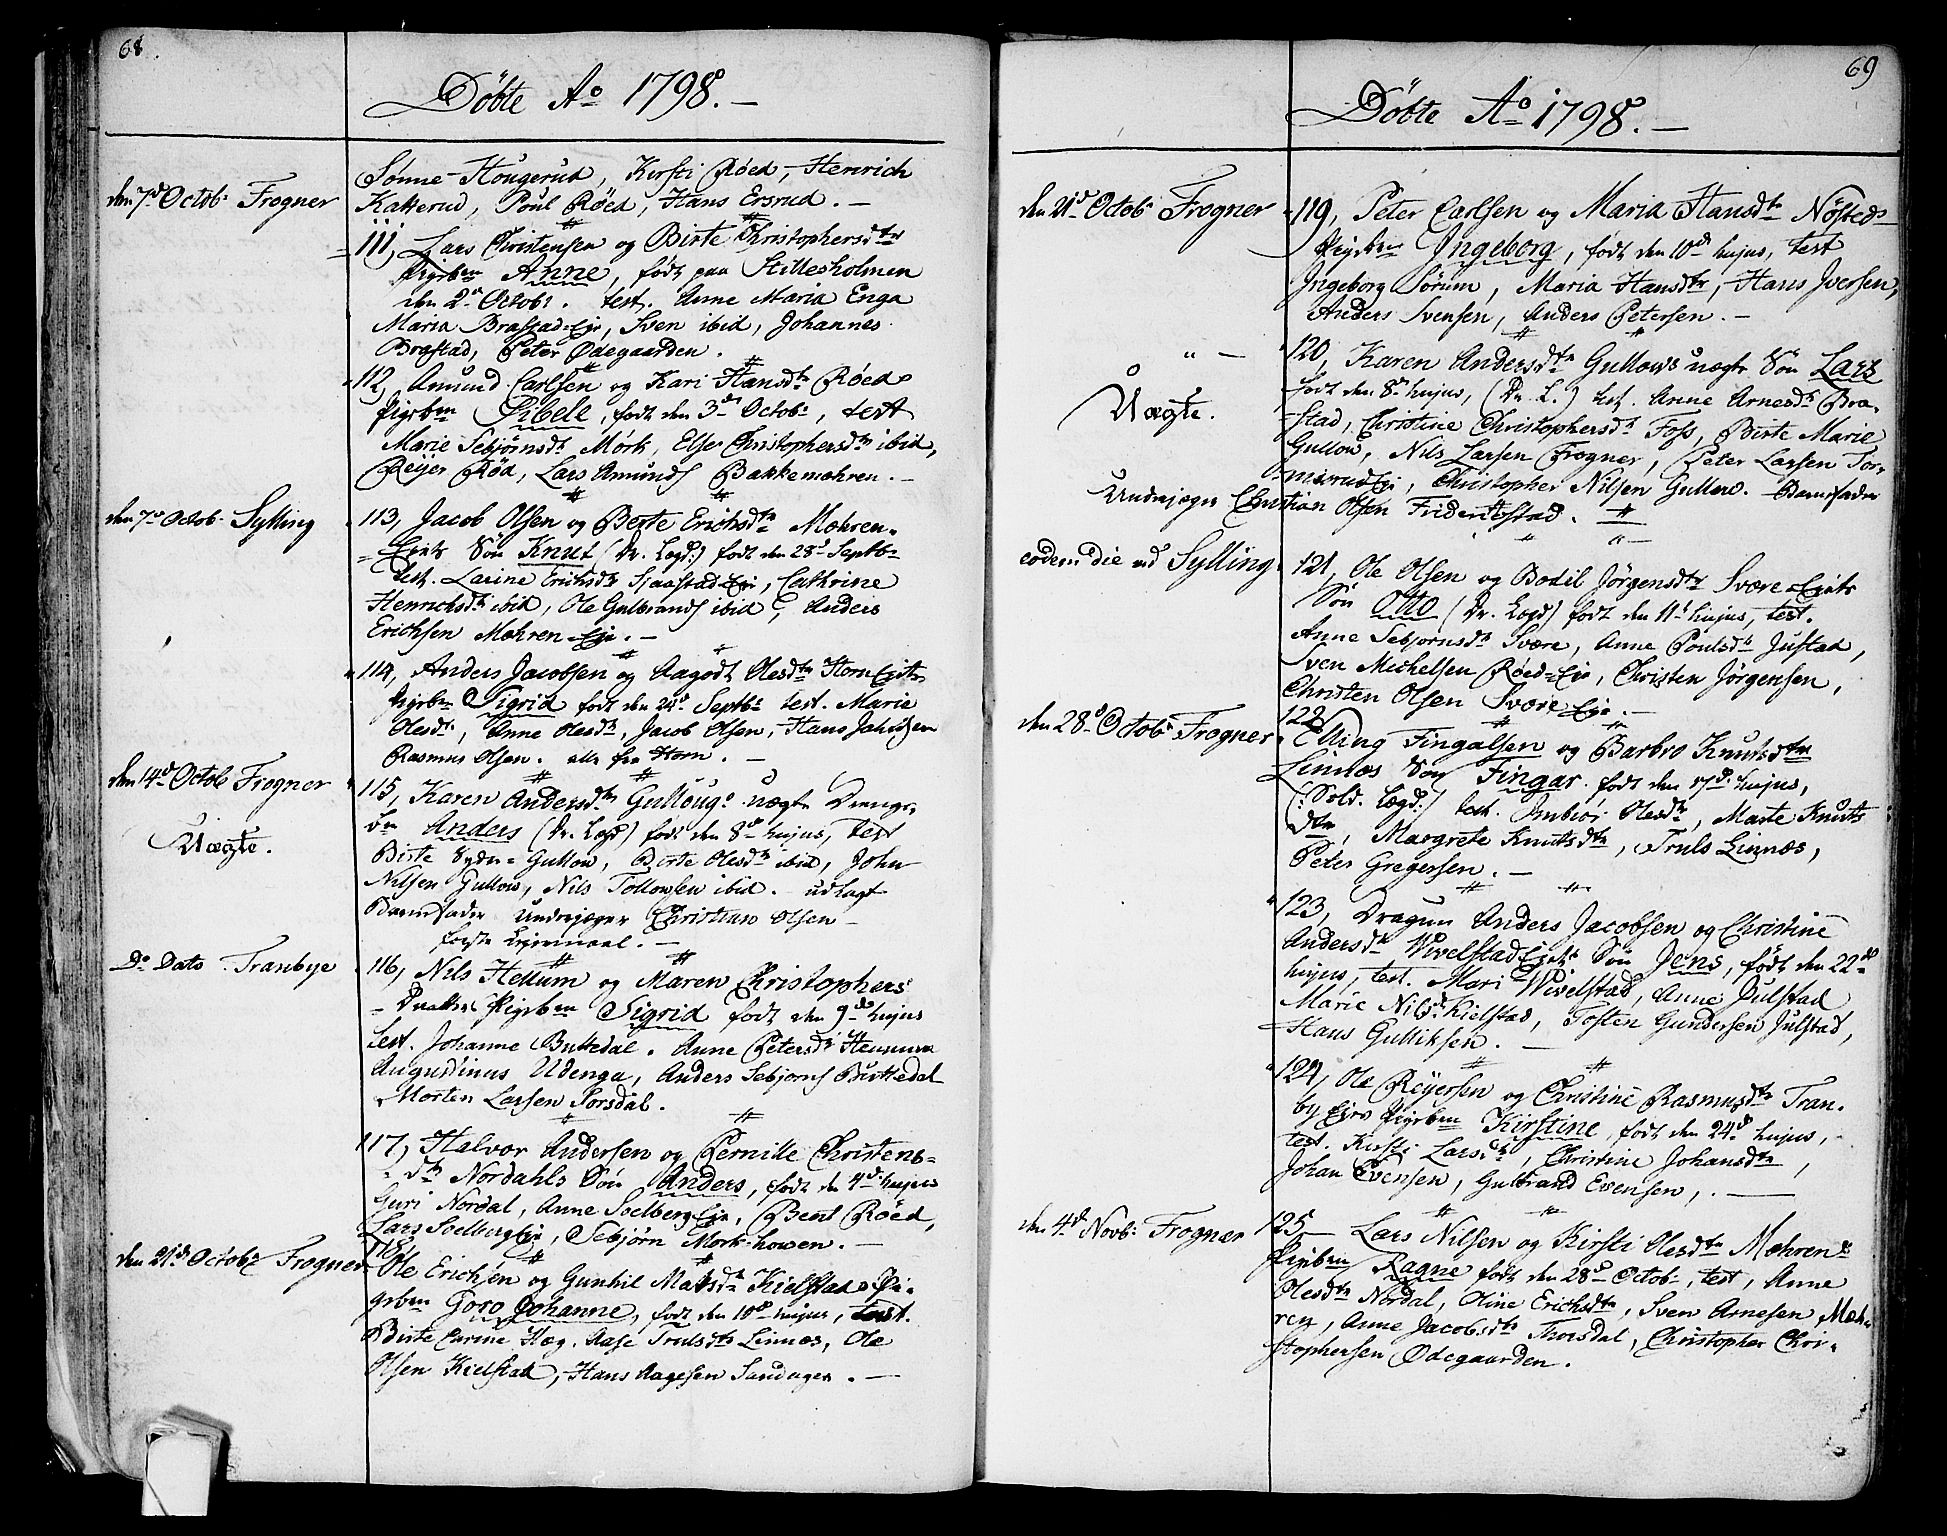 68.
Döbte Ao 1798. —
den 7d Octob: Frogner
Sønne Hougerud, Kirsti Røed, Henrich
Kakkerud, Poul Røed, Hans Ersrud. —
111, Lars Christensen og Birte Christophersdtr
Pigebn Anne, født paa Stillesholmen
den 2d Octobr. test. Anne Maria Enga
Maria Brastad-Eje, Sven ibid, Johannes
Brastad, Peter Ødegaarden.
112, Amund Carlsen og Kari Hansdtr Røed
Pigebn Sibele, født den 3d Octob:, test
Marie Sebjørnsdt Mørk, Else Christophersdtr ibid,
Reyer Rød, Lars Amunds Bakkemæhren. —
den 7d Octob: Sylling
113, Jacob Olsen og Berte Erichsdtr Mæhren-
-Ejets Søn Knut (Dr. Lægd:) født den 28d Septbr
test. Larine Erichsdtr Sjaastad-Eje, Cathrine
Henrichsdtr ibid, Ole Gulbrands ibid, Anders
Erichsen Mæhren-Eje. —
114, Anders Jacobsen og Aagodt Olesdtr Horn Ejets
Pigebn Sigrid født den 24d Septbr test. Marie
Olesdt, Anne Olesdtr, Jacob Olsen, Hans Jahnsen
Rasmus Olsen. alle fra Horn. —
den 14d Octob Frogner
Uægte.
115, Karen Andersdtr Gulloug: uægte Drenge-
bn Anders (Dr. Lægd) født den 8d hujus, test
Birte Sydre-Gullow, Birte Olesdtr ibid, John
Nilsen Gullow, Nils Tollowsen ibid. — udlagt
Barnefader Undrejæger Christian Olsen —
første Lejermaal. —
Do Dato Tranbye
116, Nils Hellum og Maren Christophers
-Datter Pigebn Sigrid født den 9d hujus
test. Johanne Buttedal. Anne Petersdtr
Augustinus Udenga, Anders Sebjorns Buttedal
Morten Larsen Porsdal.
117, Halvor Andersen og Pernille Christens-
-dtr Nordahls Søn Anders, født den 4d hujus
Guri Nordal, Anne Soelberg Eje, Bent Røed,
Lars Soelberg Eje, Sebjørn Mørk-howen. —
den 21d Octobr Frogner
118, Ole Erichsen og Gunhil Matsdtr Kielstad Pi-
gebn Goro Johanne, født den 10d hujus, test.
Birte Carine Hæg, Aase Trulsdtr Linnæs, Ole
Olsen Kielstad, Hans Aagesen Sandager. —
69
Döbte Ao 1798. —
den 21d Octob: Frogner
119, Peter Carlsen og Maria Hansdtr Nøsteds-
Pigebn Ingeborg, født den 10d hujus, test
Ingeborg Sørum, Maria Hansdtr, Hans Iversen,
Anders Svensen, Anders Petersen. —
" —
Uægte.
120, Karen Andersdtr Gullows uægte Søn Lars
født den 8d hujus, (Dr. L.) test. Anne Arnesdtr Bra-
stad, Christine Christophersdtr Foss, Birte Marie
Gullow, Nils Larsen Frogner, Peter Larsen Tor-
misrud Eje, Christopher Nilsen Gullow. — Barnefader
Undrejæger Christian Olsen Friderichstad.
eodem die ved Sylling.
121, Ole Olsen og Bodil Jörgensdtr Svære-Ejets
Søn Otto (Dr. Lægd) født den 11d hujus, test.
Anne Sebjørnsdtr Svære, Anne Poulsdtr Justad,
Sven Michelsen Røed-Eje, Christen Jørgensen,
Christen Olsen Svære Eje. —
den 28d Octob: Frogner
122, Elling Fingalsen og Barbro Knutsdtr
Linnæs Søn Fingar. født den 17d hujus,
(: Sold. Lægd:) test. Olesdtr, Marte Knuts
dtr, Margrete Knutsdtr, Truls Linnæs,
Peter Gregersen. —
123, Dragun Anders Jacobsen og Christine
Andersdtr Wivelstad Ejets Søn Jens, født den 22d
hujus, test. Mari Wivelstad, Anne Julstad
Marie Nilsd Kielstad, Tosten Gundersen Julstad,
Hans Gulliksen. —
124, Ole Reyersen og Christine Rasmusdtr Tran-
by Ejes Pigebn Kirstine, født den 24d hujus,
test. Kirsti Larsdtr, Christine Johansdtr,
Johan Evensen, Gulbrand Evensen, . —
den 4d Novb: Frogner
125, Lars Nilsen og Kirsti Olesdtr Mæhrens
Pigebn Ragne født den 28d Octob:, test, Anne
Olesdtr Nordal, Oline Erichsdtr, Sven Arnesen Mæh-
ren, Anne Jacobsdtr Thorsdal, Christopher Chri-
stophersen Ødegaarden.